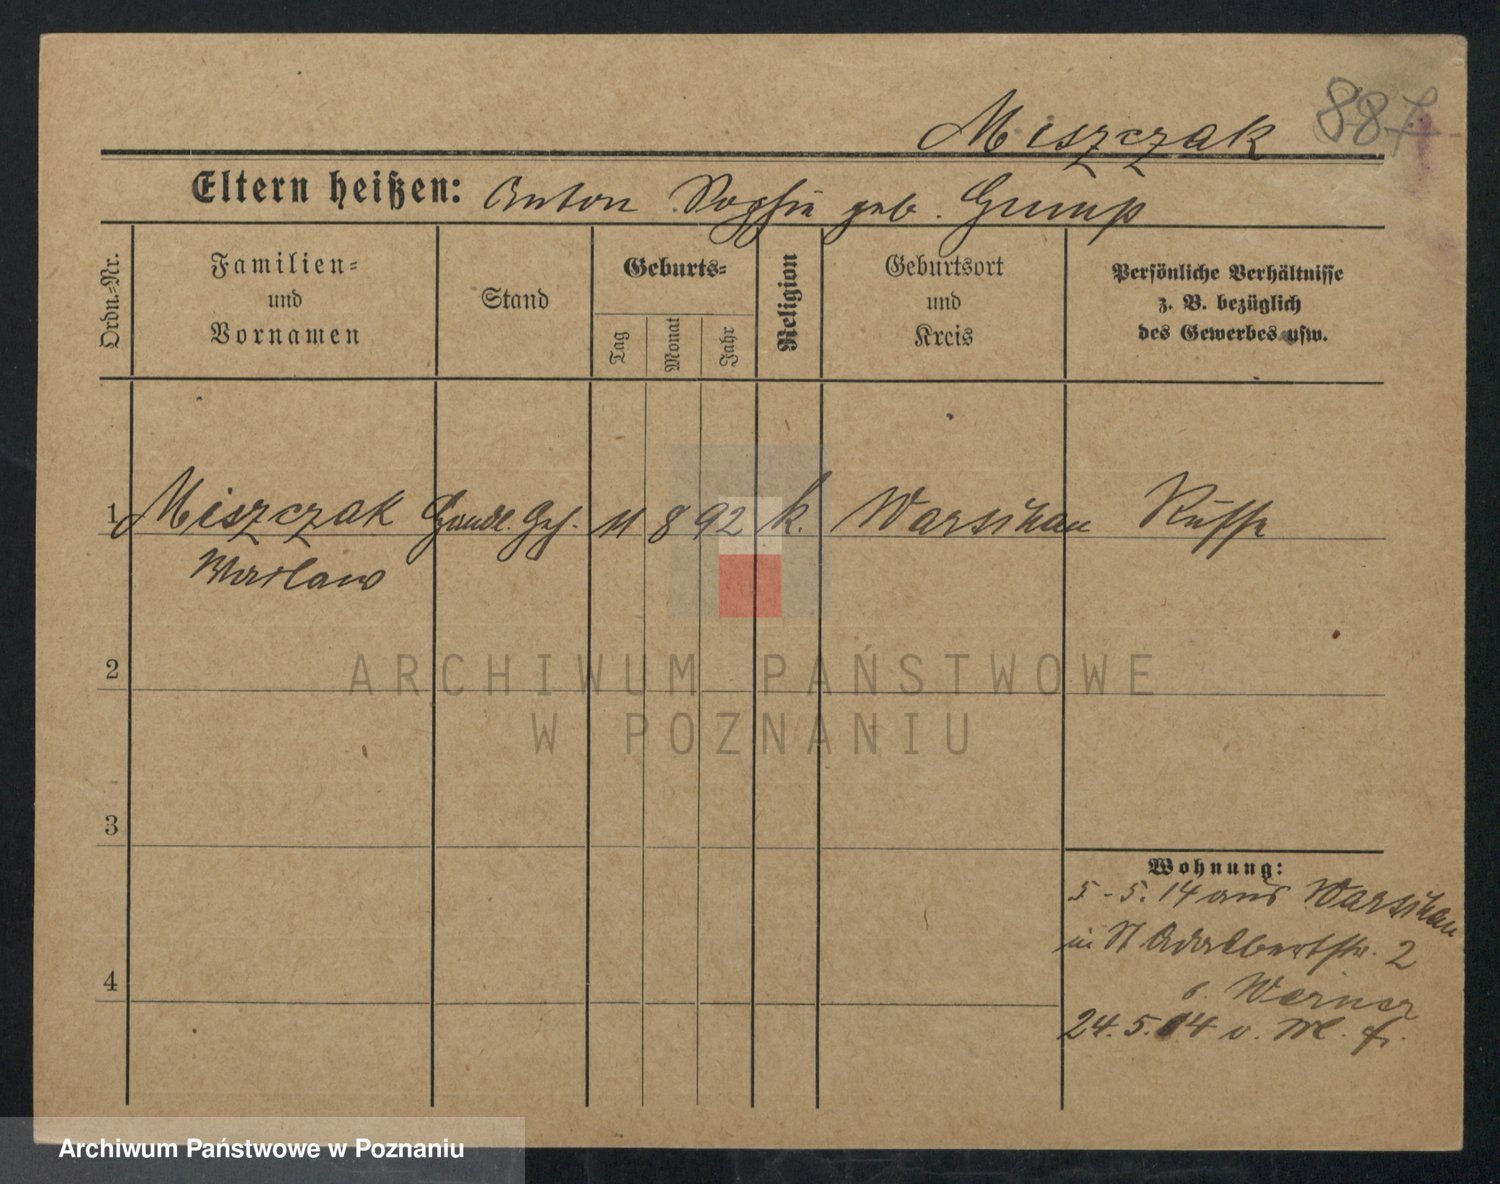 Miszczak 887
Eltern heißen: Anton Sophie geb. Gump
Ordn.-Nr.
Familien-
und
Vornamen
Stand
Geburts-
Tag
Monat
Jahr
Religion
Geburtsort
und
Kreis
Persönliche Verhältnisse
z. B. bezüglich
des Gewerbes usw.
1 Miszczak Handl. Geh. 11 8 92 k. Warschau Russe
Waclaw
ARCHIWUM PAŃSTWOWE
W POZNANIU
2
3
4
Wohnung:
5-5.14 aus Warschau
in St Adalbertstr. 2
b. Werner
24.5.14 v. M.
Archiwum Państwowe w Poznaniu